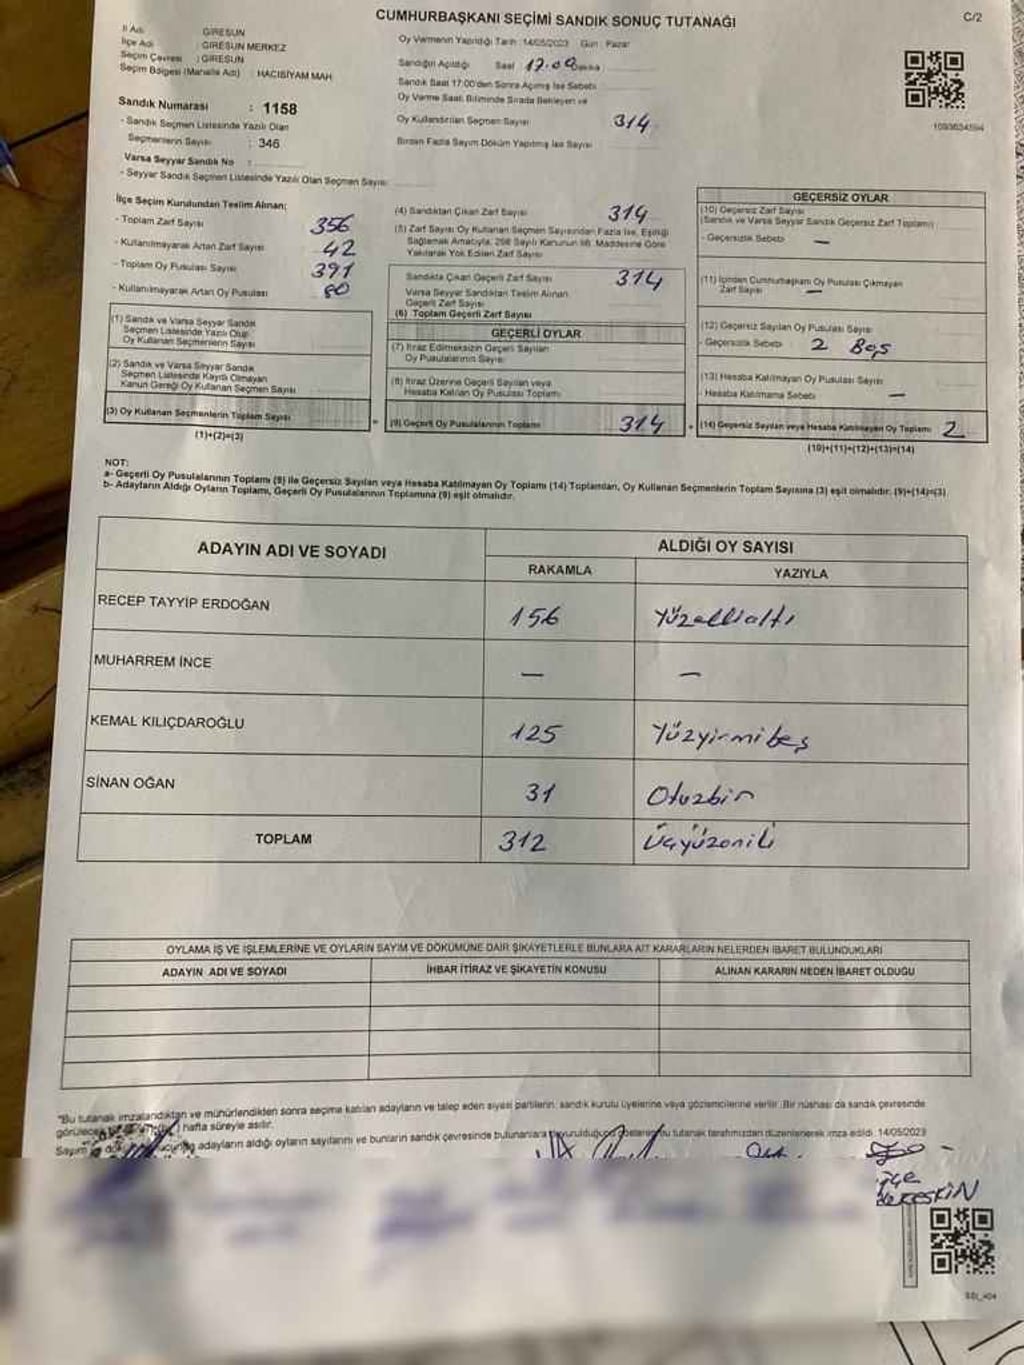 CUMHURBAŞKANI SEÇİMİ SANDIK SONUÇ TUTANAĞI
C/2
İl Adı : GİRESUN
İlçe Adı : GİRESUN MERKEZ
Seçim Çevresi : GİRESUN
Seçim Bölgesi (Mahalle Adı) : HACISİYAM MAH.
Sandık Numarası : 1158
- Sandık Seçmen Listesinde Yazılı Olan
Seçmenlerin Sayısı : 346
Varsa Seyyar Sandık No :
- Seyyar Sandık Seçmen Listesinde Yazılı Olan Seçmen Sayısı:
Oy Vermenin Yapıldığı Tarih : 14/05/2023 Gün : Pazar
Sandığın Açıldığı Saat 17.00
Sandık Saat 17:00'den Sonra Açılmış İse Sebebi
Oy Verme Saati Bitiminde Sırada Bekleyen ve
Oy Kullandırılan Seçmen Sayısı 314
Birden Fazla Sayım Döküm Yapılmış İse Sayısı
1093634594
İlçe Seçim Kurulundan Teslim Alınan;
- Toplam Zarf Sayısı 356
- Kullanılmayarak Artan Zarf Sayısı 42
- Toplam Oy Pusulası Sayısı 391
- Kullanılmayarak Artan Oy Pusulası 80
(1) Sandık ve Varsa Seyyar Sandık
Seçmen Listesinde Yazılı Olup
Oy Kullanan Seçmenlerin Sayısı
(2) Sandık ve Varsa Seyyar Sandık
Seçmen Listesinde Kayıtlı Olmayan
Kanun Gereği Oy Kullanan Seçmen Sayısı
(3) Oy Kullanan Seçmenlerin Toplam Sayısı
(1)+(2)=(3)
(4) Sandıktan Çıkan Zarf Sayısı 314
(5) Zarf Sayısı Oy Kullanan Seçmen Sayısından Fazla İse, Eşitliği
Sağlamak Amacıyla, 298 Sayılı Kanunun 98. Maddesine Göre
Yakılarak Yok Edilen Zarf Sayısı
Sandıkta Çıkan Geçerli Zarf Sayısı 314
Varsa Seyyar Sandıktan Teslim Alınan
Geçerli Zarf Sayısı
(6) Toplam Geçerli Zarf Sayısı
GEÇERLİ OYLAR
(7) İtiraz Edilmeksizin Geçerli Sayılan
Oy Pusulalarının Sayısı
(8) İtiraz Üzerine Geçerli Sayılan veya
Hesaba Katılan Oy Pusulası Toplamı
= (9) Geçerli Oy Pusulalarının Toplamı 314
GEÇERSİZ OYLAR
(10) Geçersiz Zarf Sayısı
(Sandık ve Varsa Seyyar Sandık Geçersiz Zarf Toplamı)
- Geçersizlik Sebebi —
(11) İçinden Cumhurbaşkanı Oy Pusulası Çıkmayan
Zarf Sayısı —
(12) Geçersiz Sayılan Oy Pusulası Sayısı
- Geçersizlik Sebebi 2 Boş
(13) Hesaba Katılmayan Oy Pusulası Sayısı
- Hesaba Katılmama Sebebi —
+ (14) Geçersiz Sayılan veya Hesaba Katılmayan Oy Toplamı 2
(10)+(11)+(12)+(13)=(14)
NOT:
a- Geçerli Oy Pusulalarının Toplamı (9) ile Geçersiz Sayılan veya Hesaba Katılmayan Oy Toplamı (14) Toplamları, Oy Kullanan Seçmenlerin Toplam Sayısına (3) eşit olmalıdır. (9)+(14)=(3)
b- Adayların Aldığı Oyların Toplamı, Geçerli Oy Pusulalarının Toplamına (9) eşit olmalıdır.
ADAYIN ADI VE SOYADI
ALDIĞI OY SAYISI
RAKAMLA YAZIYLA
RECEP TAYYİP ERDOĞAN 156 Yüzellialtı
MUHARREM İNCE — —
KEMAL KILIÇDAROĞLU 125 Yüzyirmibeş
SİNAN OĞAN 31 Otuzbir
TOPLAM 312 Üçyüzoniki
OYLAMA İŞ VE İŞLEMLERİNE VE OYLARIN SAYIM VE DÖKÜMÜNE DAİR ŞİKAYETLERLE BUNLARA AİT KARARLARIN NELERDEN İBARET BULUNDUKLARI
ADAYIN ADI VE SOYADI
İHBAR İTİRAZ VE ŞİKAYETİN KONUSU
ALINAN KARARIN NEDEN İBARET OLDUĞU
"Bu tutanak imzalandıktan ve mühürlendikten sonra seçime katılan adayların ve talep eden siyasi partilerin, sandık kurulu üyelerine veya gözlemcilerine verilir. Bir nüshası da sandık çevresinde
görülecek hafta süreyle asılır.
Sayım adayların aldığı oyların sayılarını ve bunların sandık çevresinde bulunanlara bu tutanak tarafımızdan düzenlenerek imza edildi. 14/05/2023
KESKİN